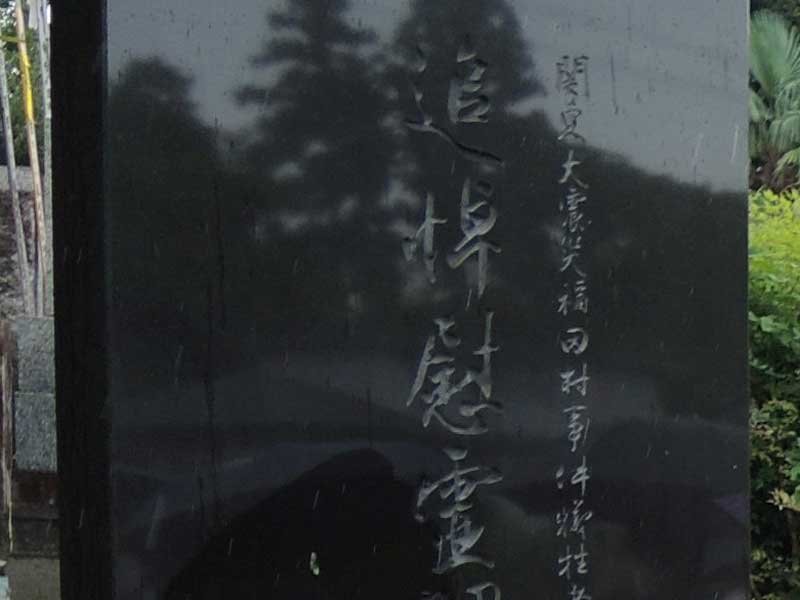 関東大震災福田村事件犠牲者
追悼慰霊碑